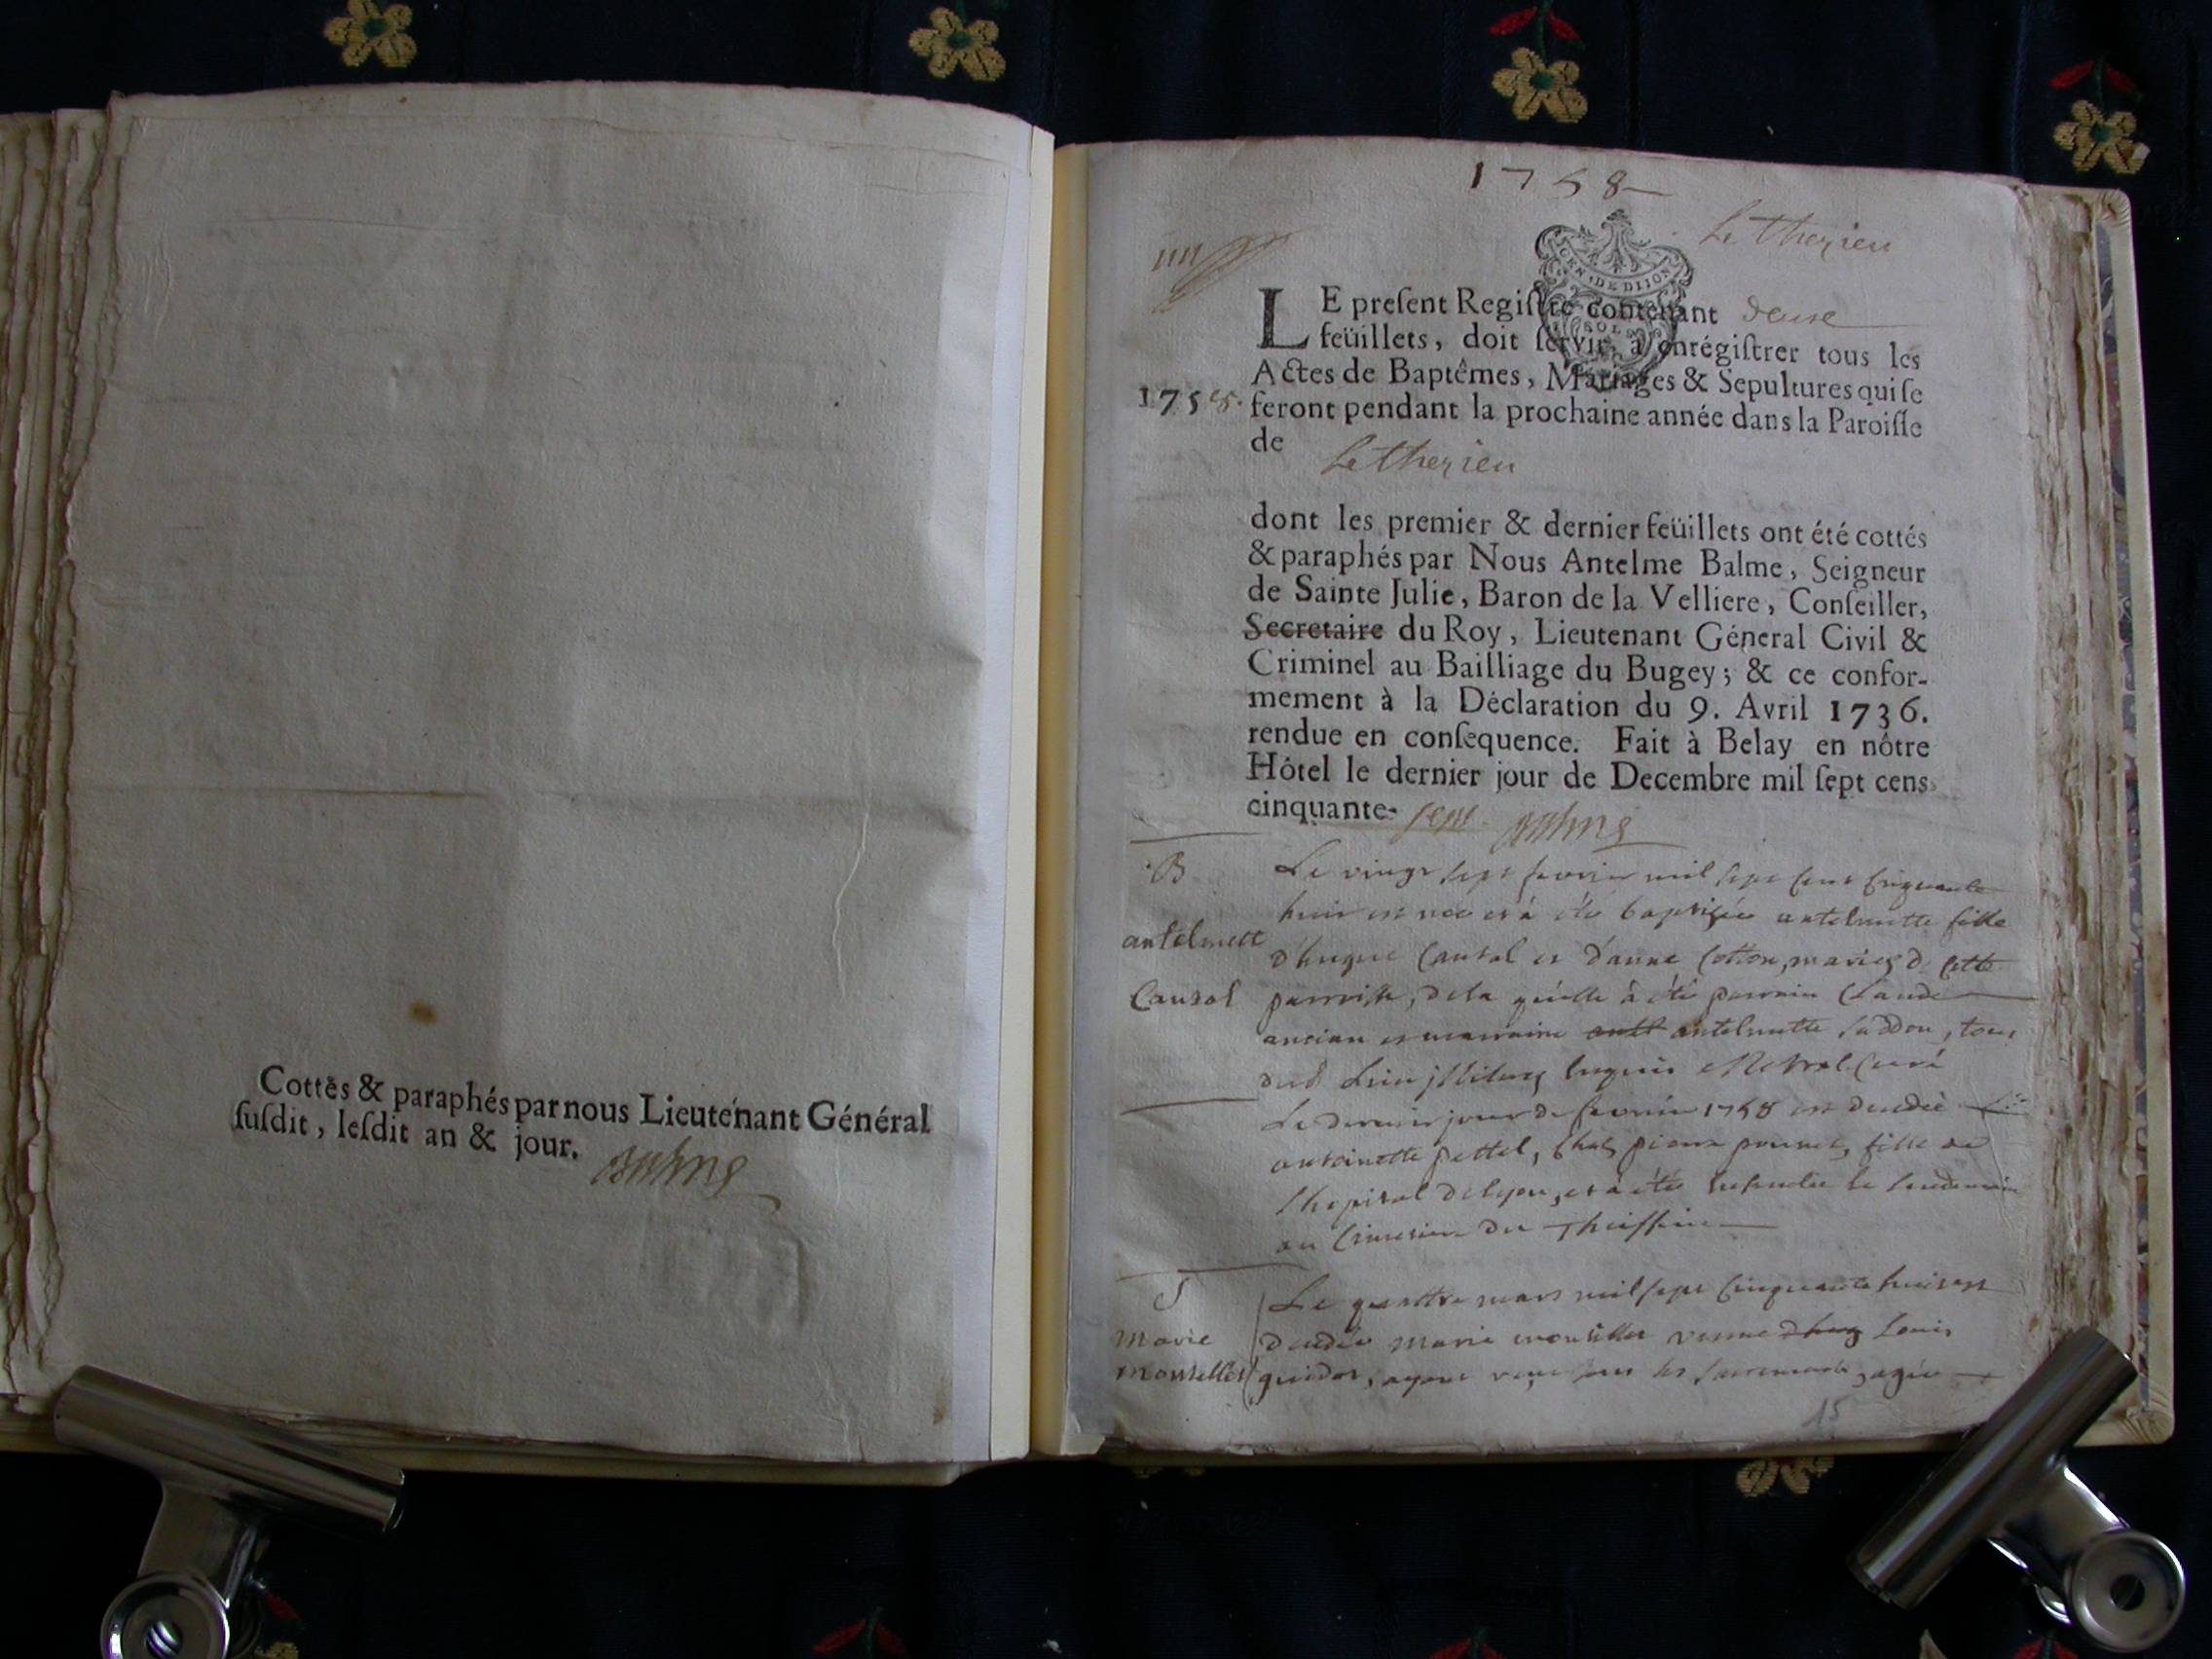 Cottés & paraphés par nous Lieutenant Général
ſuſdit, leſdit an & jour.
Balme
1758
Letherieu
GEN. DE DIJON
SOLS
LE preſent Regiſtre contenant deux
feüillets, doit ſervir à enrégiſtrer tous les
Actes de Baptêmes, Mariages & Sepultures qui ſe
1758. feront pendant la prochaine année dans la Paroiſſe
de Letherieu
dont les premier & dernier feüillets ont été cottés
& paraphés par Nous Antelme Balme, Seigneur
de Sainte Julie, Baron de la Velliere, Conſeiller,
Secretaire du Roy, Lieutenant Géneral Civil &
Criminel au Bailliage du Bugey; & ce confor-
mement à la Déclaration du 9. Avril 1736.
rendue en conſequence. Fait à Belay en nôtre
Hôtel le dernier jour de Decembre mil ſept cens
cinquante- sept. Balme
B
antelmett
Causol
Le vingt sept fevrier mil sept cent cinquante
huit est née et à été baptisée antelmette fille
d'hugue Causol et d'anne Cotton, mariez de cette
parroisse, de la quelle à été parrain Claude
ancian et marraine antelmette
Curé
Le dernier jour de fevrier 1758 est decedée
antoinette pettel, chez pierre fille de
l'hopital de lyon, et à été le lendemain
au Cimetiere
S
Marie
Le quattre mars mil sept cinquante huit est
decedée marie veuve Louis
guidot, ayant reçu tous les sacrements, agée
15